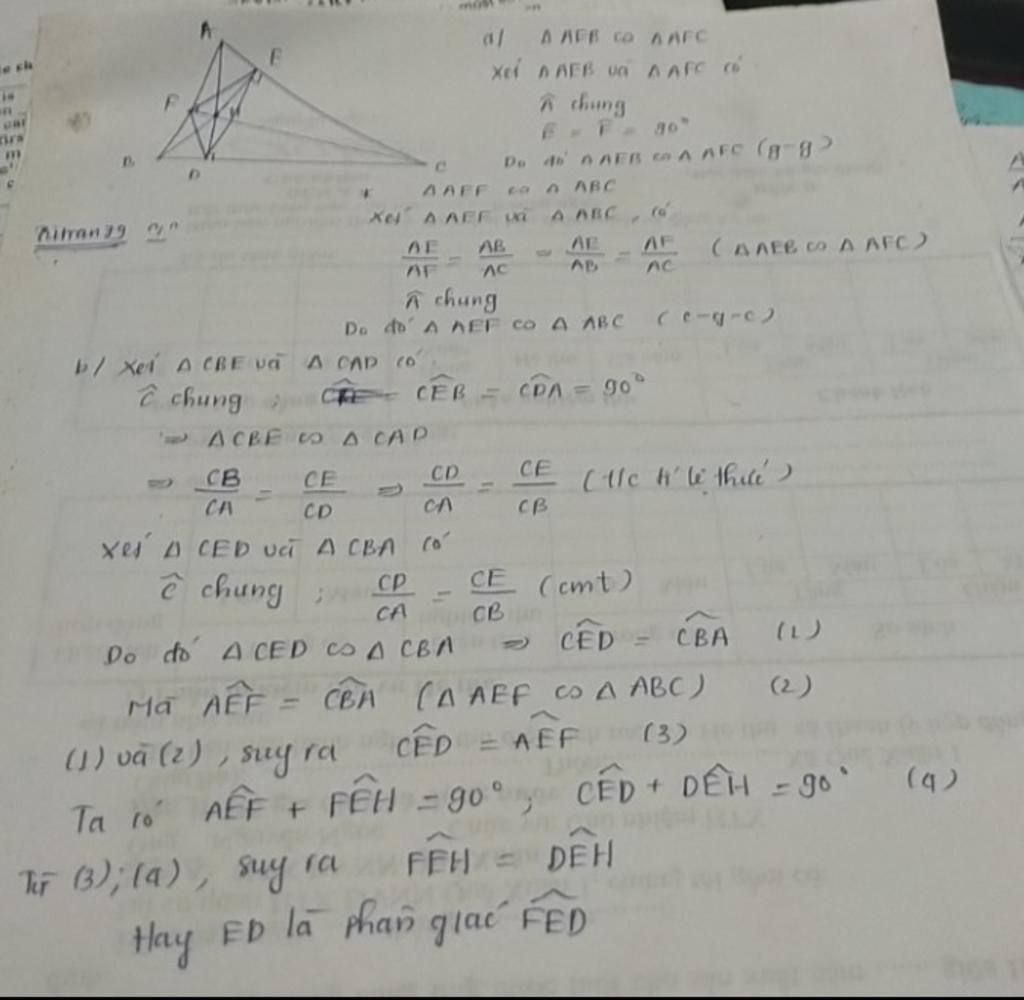 a/ △AEB ∽ △AFC
Xét △AEB và △AFC có
Â chung
E = F = 90°
Do đó △AEB ∽ △AFC (g-g)
* △AEF ∽ △ABC
Xét △AEF và △ABC, có
AE/AF = AB/AC ⇒ AE/AB = AF/AC (△AEB ∽ △AFC)
Â chung
Do đó △AEF ∽ △ABC (c-g-c)
A
E
F
H
B
D
C
b/ Xét △CBE và △CAD có
Ĉ chung ; CÊB = CD̂A = 90°
⇒ △CBE ∽ △CAD
⇒ CB/CA = CE/CD ⇒ CD/CA = CE/CB (t/c tỉ lệ thức)
Xét △CED và △CBA có
Ĉ chung ; CD/CA = CE/CB (cmt)
Do đó △CED ∽ △CBA ⇒ CÊD = CB̂A (1)
Mà AÊF = CB̂A (△AEF ∽ △ABC) (2)
(1) và (2), suy ra CÊD = AÊF (3)
Ta có AÊF + FÊH = 90° ; CÊD + DÊH = 90° (4)
Từ (3); (4), suy ra FÊH = DÊH
Hay ED là phân giác FÊD